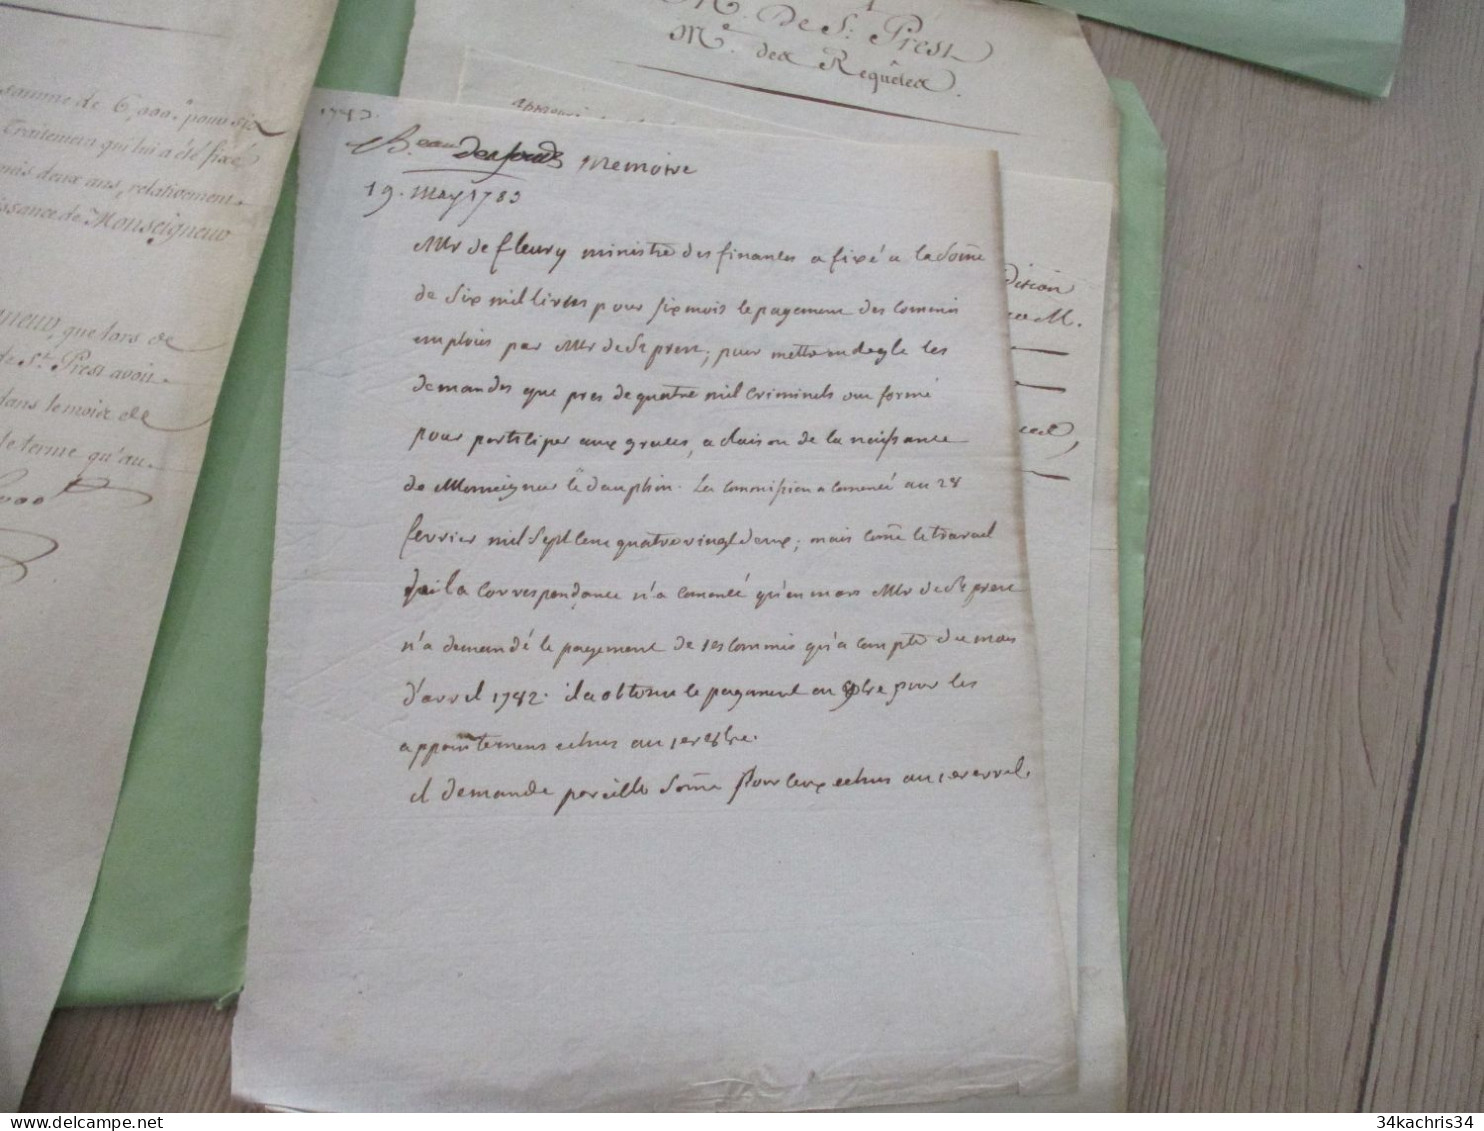 somme de 6,000.# pour six
Traitement qui lui a été fixé
mis deux ans, relativement
issance de Monseigneur
neur, que lors de
de St. Prest avoit
dans le mois de
le terme qu'au
M. De St. Prest
Me. des Requêtes.
1783.
Beau des fonds Memoire
19. May 1783
Mr de fleury ministre des finances a fixé a la Some
de Six mil livres pour six mois le payement des Commis
emploiés par Mr de St prest; pour mettre en regle les
demandes que pres de quatre mil Criminels ont formé
pour participer aux graces, a raison de la naissance
de Monseigneur le dauphin. La Commission a comencé au 28
fevrier mil Sept Cent quatre vingt deux; mais come le travail
de la correspondance n'a comencé qu'en mars Mr de St prest
n'a demandé le payement de ses commis qu'a compter du mois
d'avril 1782. il a obtenu le payement en 8bre pour les
appointemens echus au 1er 8bre.
il demande pareille Some pour ceux echus au 1er avril.
dition
M.
34kachris34